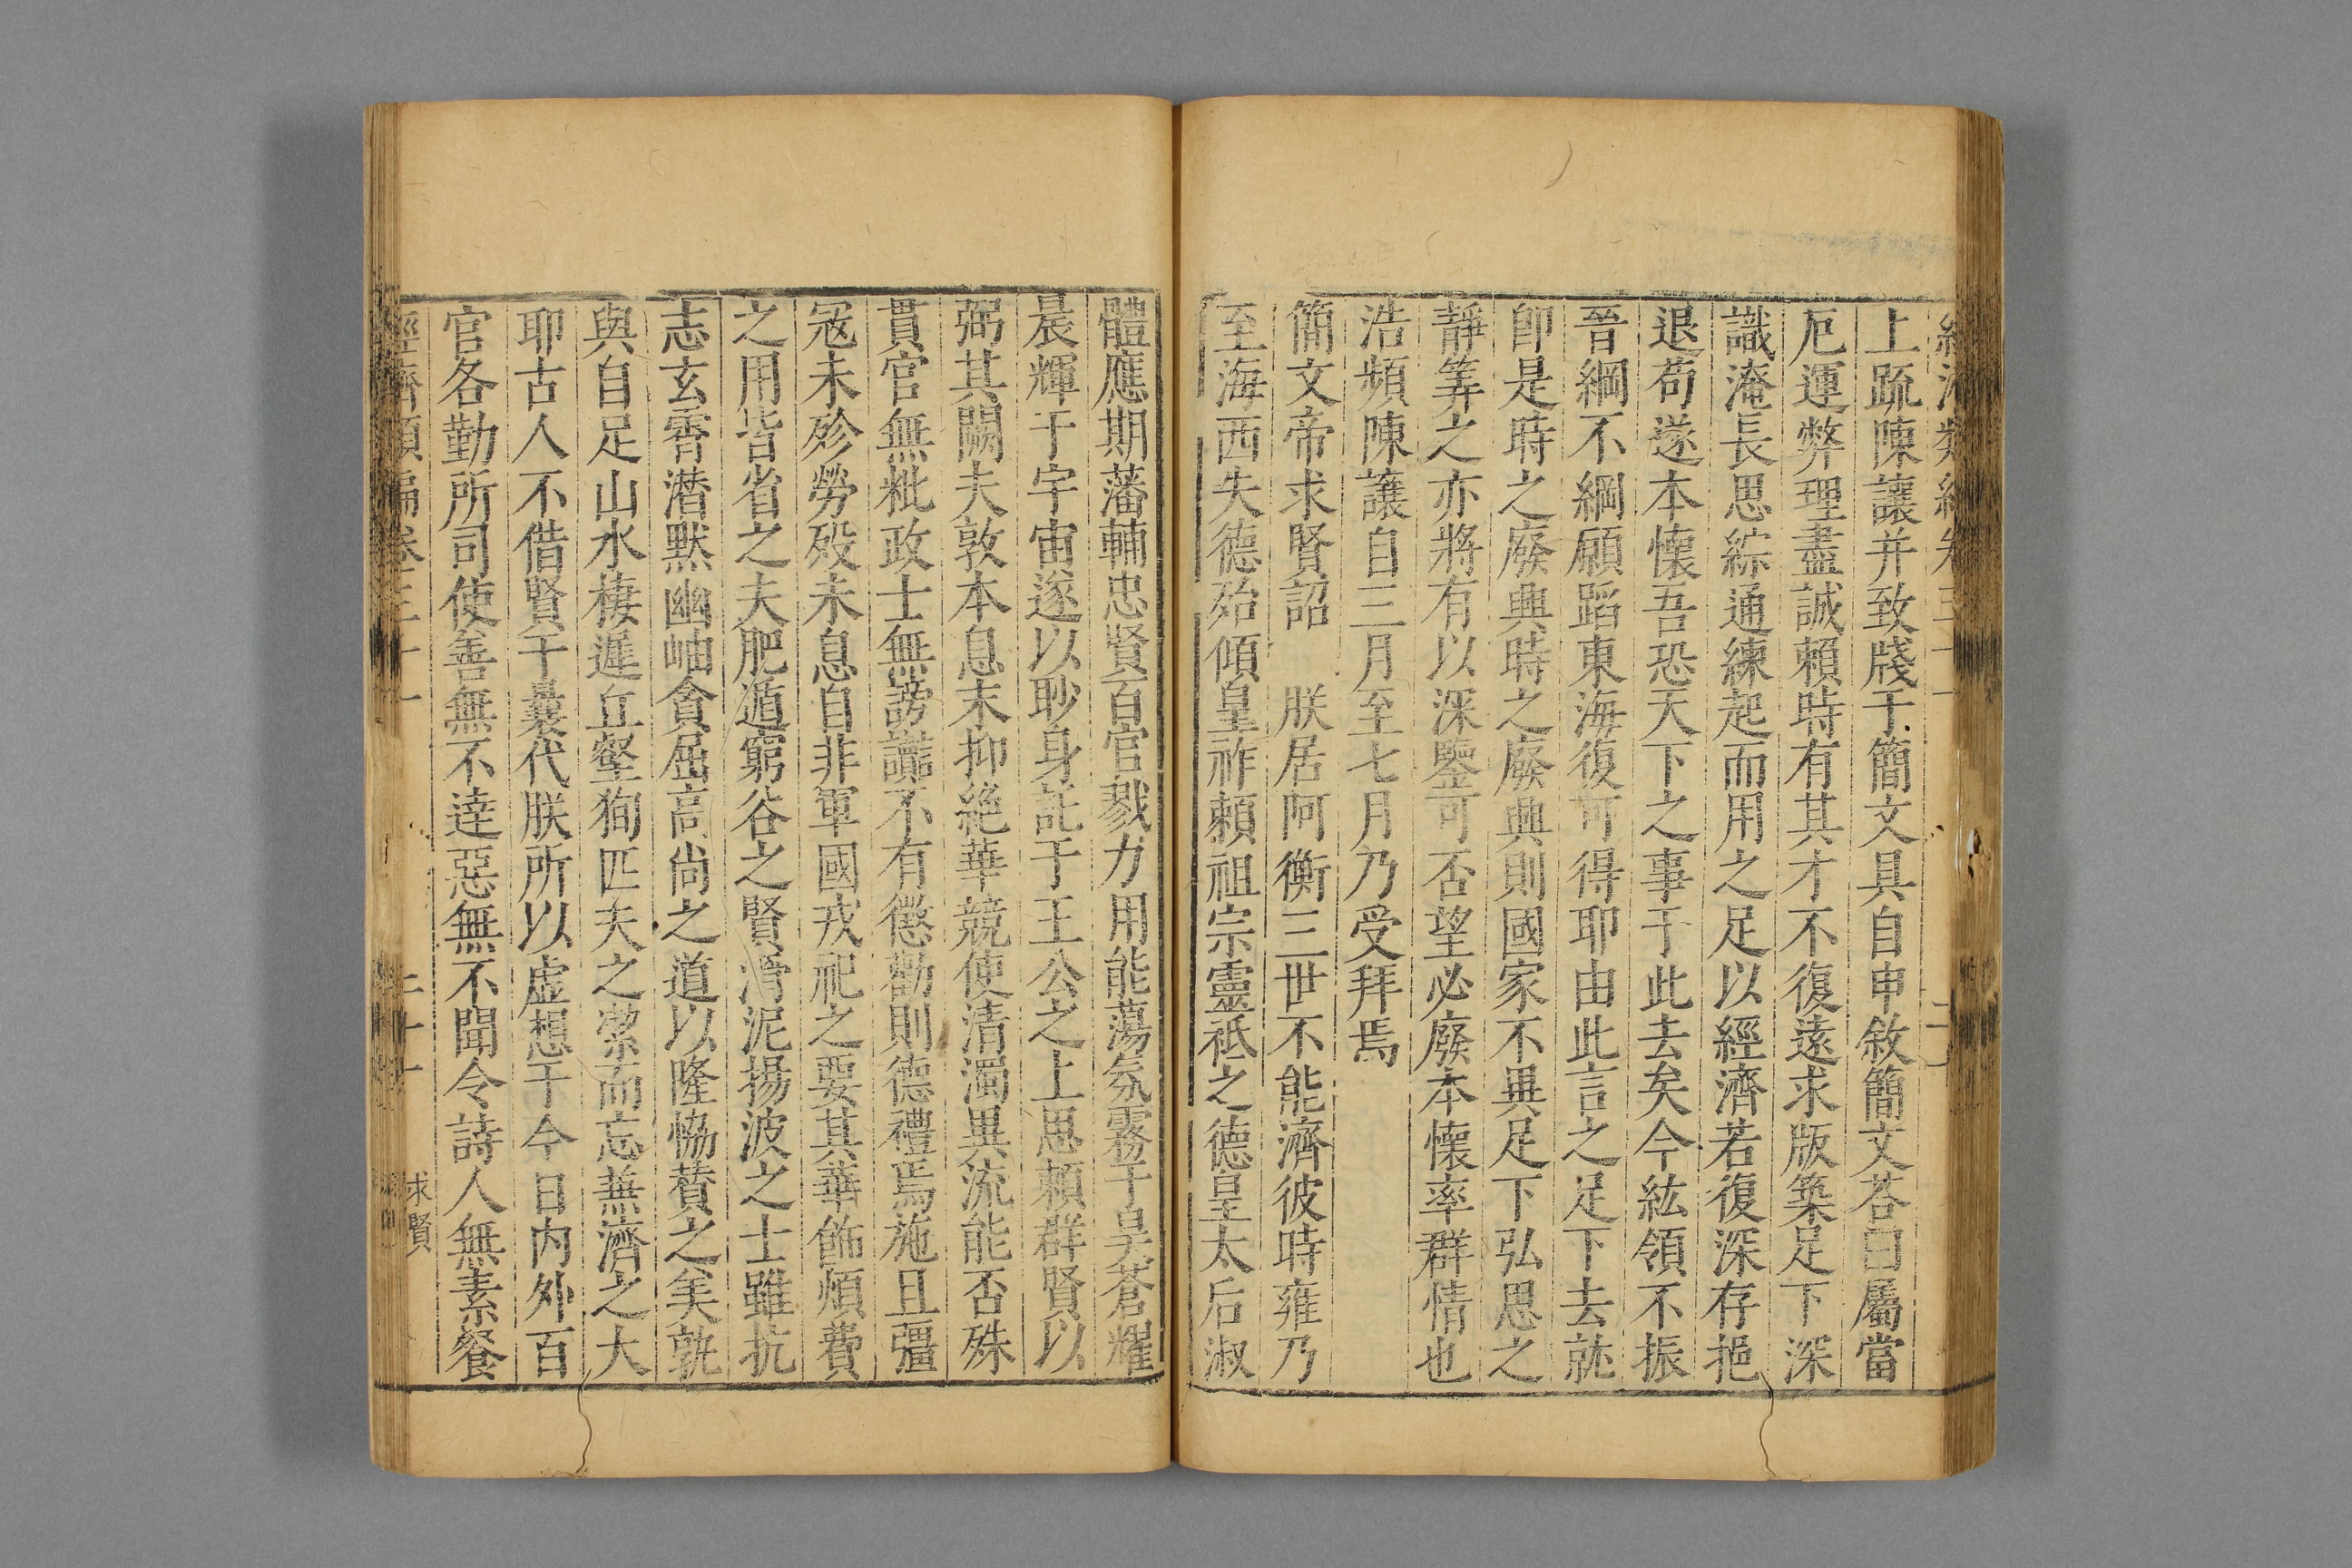 上疏陳讓并致牋于簡文具自申敘簡文荅曰屬當
厄運弊理盡誠賴時有其才不復遠求版築足下深
識淹長思綜通練起而用之足以經濟若復深存挹
退苟遂本懷吾恐天下之事于此去矣今紘領不振
晉綱不綱願蹈東海復可得耶由此言之足下去就
卽是時之廢興時之廢興則國家不異足下弘思之
靜筭之亦將有以深鑒可否望必廢本懷率群情也
浩頻陳讓自三月至七月乃受拜焉
簡文帝求賢詔 朕居阿衡三世不能濟彼時雍乃
至海西失德殆傾皇祚賴祖宗靈祗之德皇太后淑
體應期藩輔忠賢百官戮力用能蕩氛霧于昊蒼耀
晨輝于宇宙遂以眇身託于王公之上思賴群賢以
弼其闕夫敦本息末抑絕華競使清濁異流能否殊
貫官無秕政士無謗讟不有懲勸則德禮焉施且彊
宼未殄勞殁未息自非軍國戎祀之要其華飾煩費
之用皆省之夫肥遁窮谷之賢滑泥揚波之士雖抗
志玄霄潛默幽岫貪屈高尚之道以隆恊贊之美孰
與自足山水棲遲丘壑狥匹夫之潔而忘兼濟之大
耶古人不借賢于曩代朕所以虛想于今日內外百
官各勤所司使善無不達惡無不聞令詩人無素餐
經濟類編卷三十一 二十一 求賢